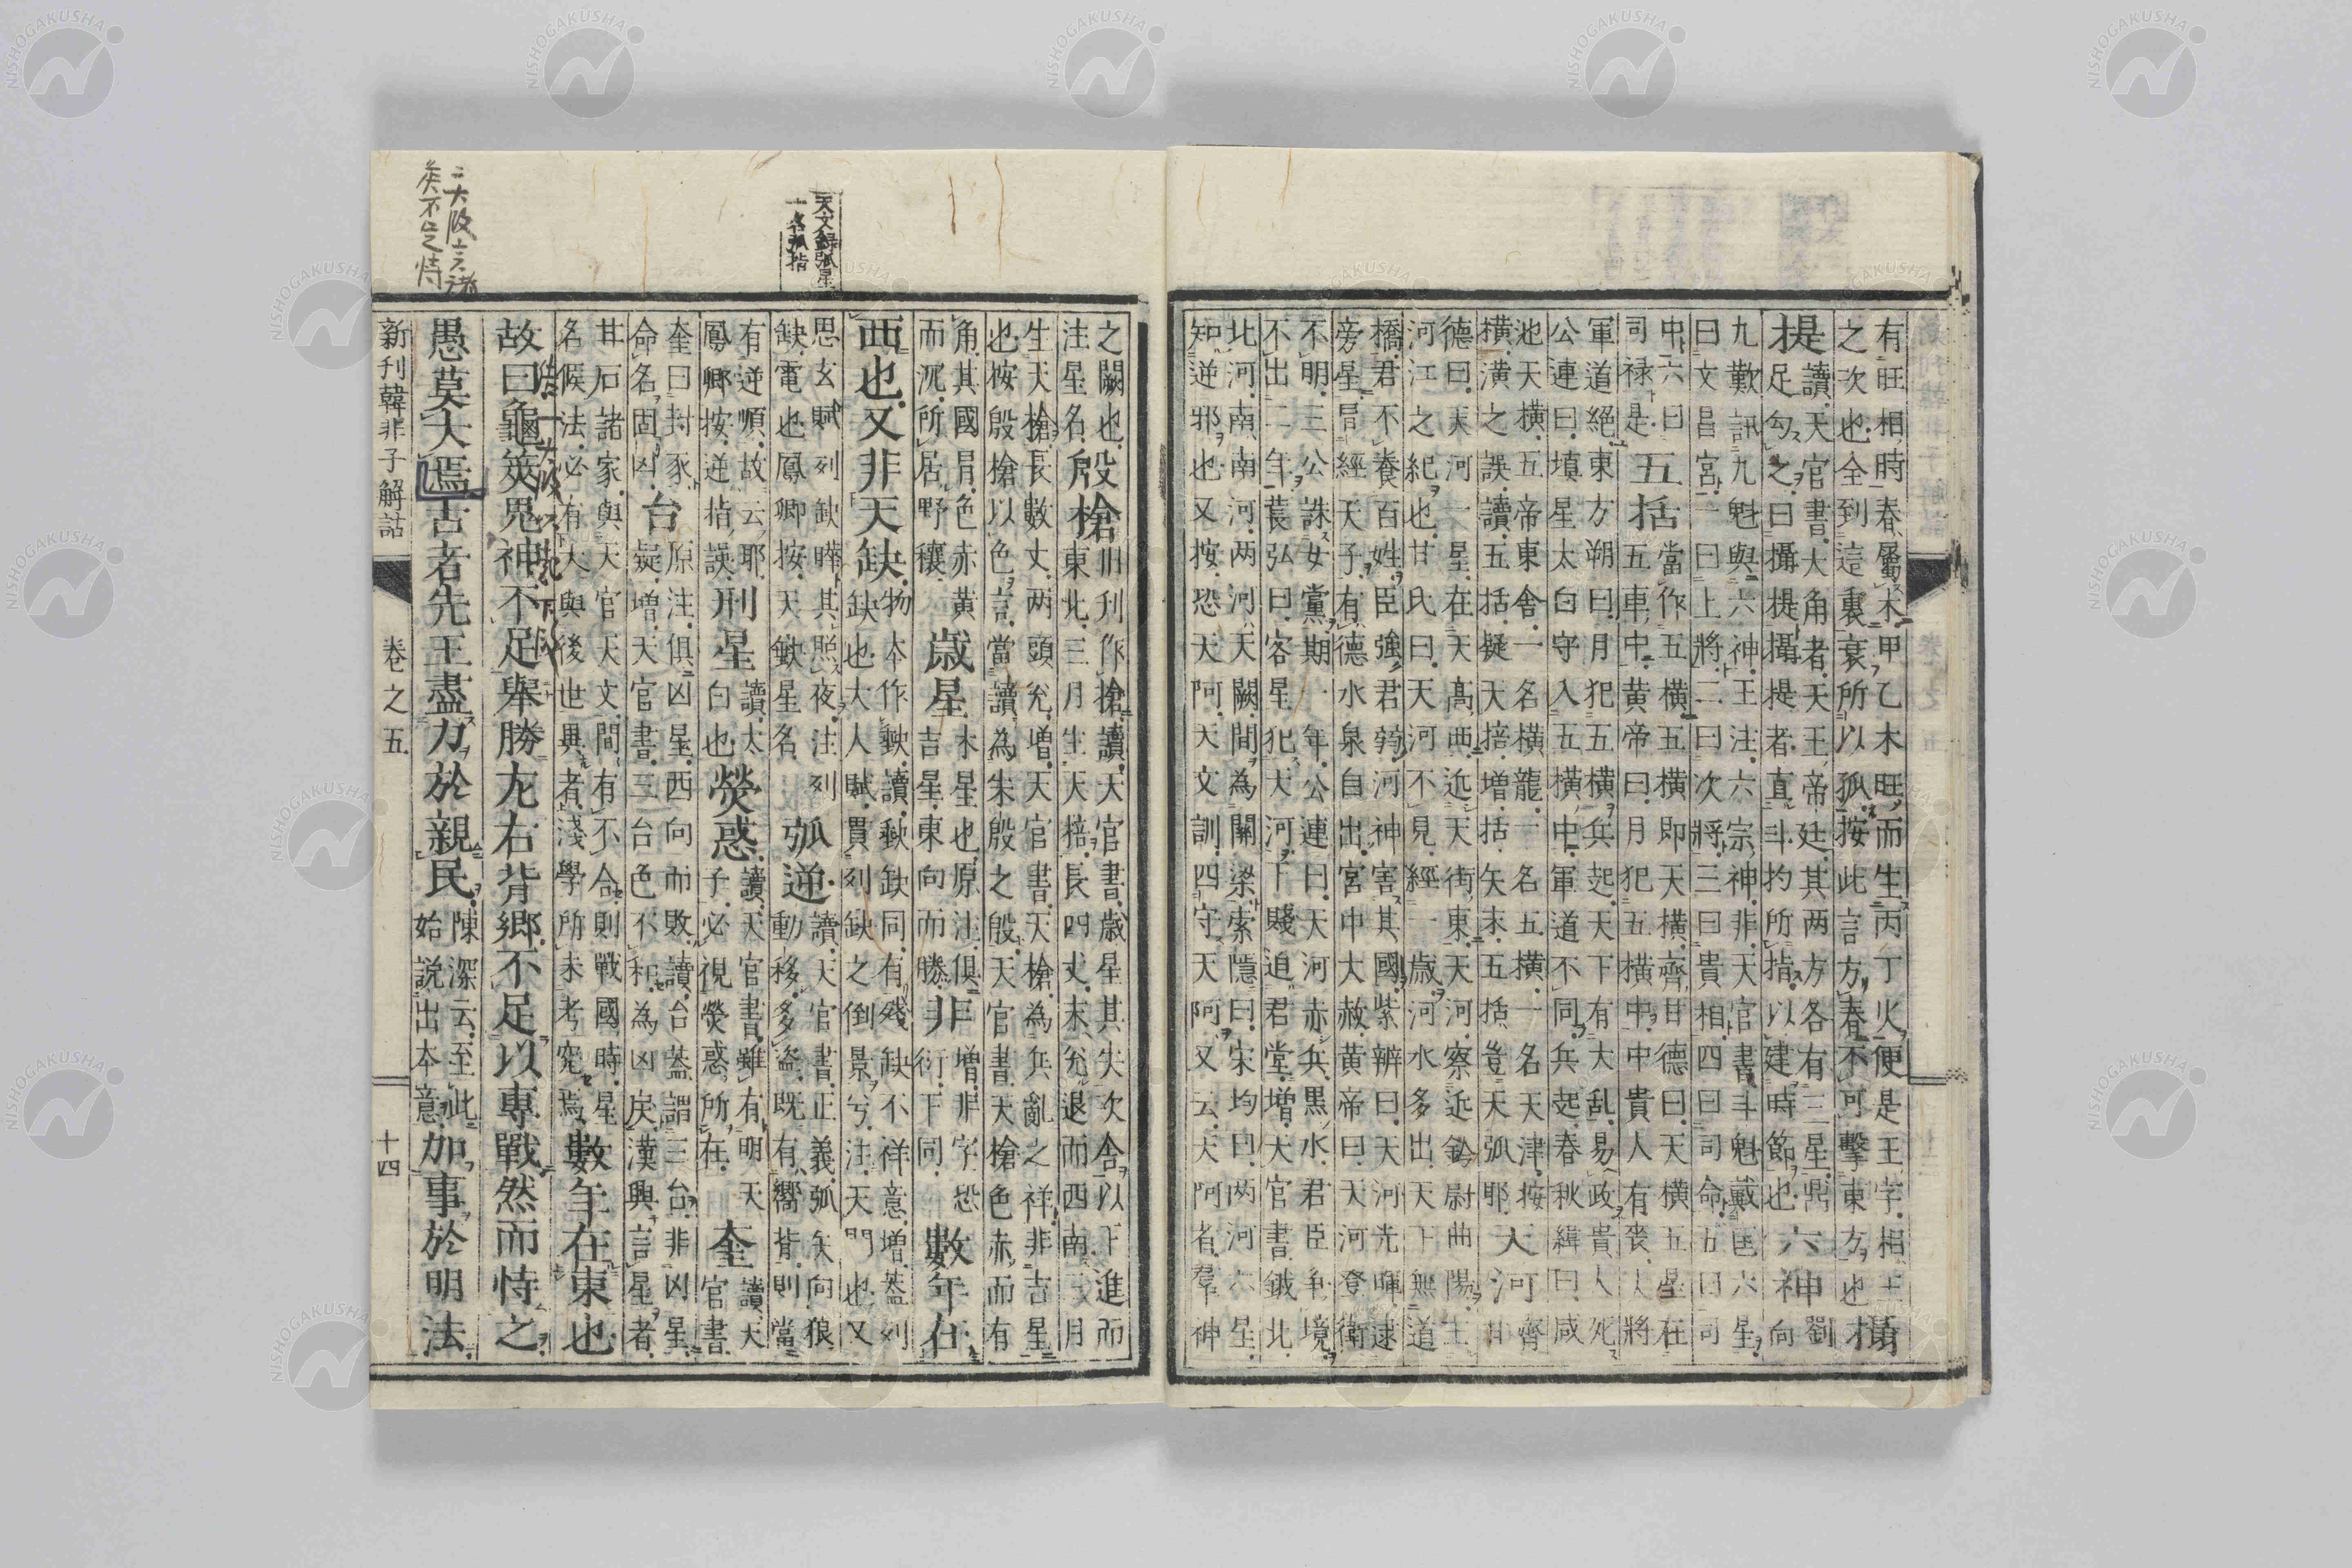 有旺相時春屬木甲乙木旺而生丙丁火便是王字相王
之次也全到這裏衰所以孤按此言方春不可擊東方也
攝
提
讀天官書大角者天王帝廷其两方各有三星鼎
足勾之曰攝提攝提者直斗杓所指以建時節也
六神
劉
向
九歎訊九魁與六神王注六宗神非天官書斗魁戴匡六星
曰文昌宮一曰上將二曰次將三曰貴相四曰司命五曰司
中六曰
司禄是
五括
當作五横五横即天横齊甘德曰天横五星在
五車中黄帝曰月犯五横中中貴人有喪大將
軍道絕東方朔曰月犯五横兵起天下有大乱易政貴人死
公連曰填星太白守入五横中軍道不同兵起春秋緯曰咸
池天横五帝東舍一名横龍一名五横一名天津按
横潢之誤讀五括疑天掊増括矢末五括豈天弧耶
天河
齊
甘
德曰天河一星在天高西近天街東天河察近鈴尉曲陽王
河江之紀也甘氏曰天河不見經一歳河水多出天下無道
橋君不養百姓臣強君弱河神害其國紫辨曰天河光暉逮
旁星昌經天子有德水泉自出宮中大赦黄帝曰天河登衛
不明三公誅女黨期一年公連曰天河赤兵黒水君臣争境
不出二年萇弘曰客星犯天河下賤追君堂増天官書鉞北
北河南南河两河天闕間為關梁索隱曰宋均曰两河六星
知逆邪也又按恐天阿天文訓四守天阿又云天阿者羣神
之闕也
注星名
殷槍
旧刊作搶讀天官書歳星其失次舍以下進而
東北三月生天棓長四丈末兊退而西南三月
生天槍長數丈两頭兊増天官書天槍為兵亂之祥非吉星
也按殷槍以色言當讀為朱殷之殷天官書天槍色赤而有
角其國昌色赤黄
而沉所居野穰
歳星
木星也原注俱
吉星東向而勝
非
増非字恐
衍下同
數年在
西也又非天缺
物本作歞讀歞缺同有残缺不祥意増蓋列
缺也大人賦貫列缺之倒景兮注天門也又
天文録弧星
一名弧指
思玄賦列缺曄其照夜注列
缺電也鳳卿按天缺星名
弧逆
讀天官書正義弧矢向狼
動移多盗既有嚮背則當
有逆順故云耶
鳳卿按逆指誤
刑星
讀太
白也
熒惑
讀天官書雖有明天
子必視熒惑所在
奎
讀天
官書
奎曰封豕
命名固凶
台
原注俱凶星西向而敗讀台蓋謂三台非凶星
疑増天官書三台色不和為凶戻漢興言星者
甘石諸家與天官天文間有不合則戰國時星
名候法必有大與後世異者淺學所未考究焉
數年在東也
故曰龜筴鬼神不足舉勝左右背鄉不足以專戰然而恃之
愚莫大焉古者先王盡力於親民
陳深云至此
始説出本意
加事於明法
新刊韓非子解詁
卷之五
十四